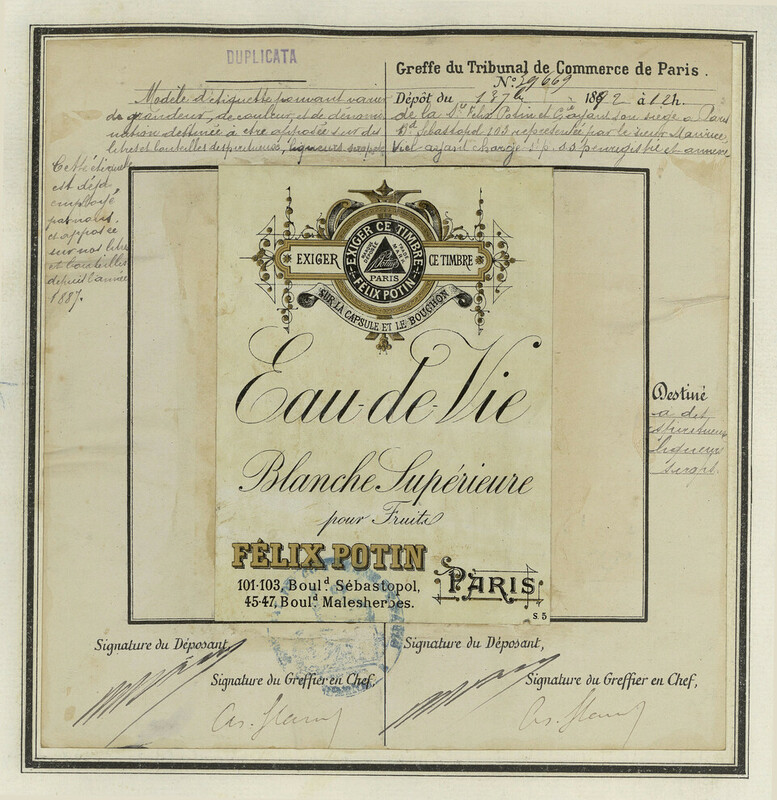 DUPLICATA
Modèle d'étiquette pouvant varier
de grandeur, de couleur, et de dénomi-
nation destinée à être apposée sur des
litres et bouteilles de spiritueux, liqueurs, sirops
Cette étiquette
est déjà
employée
par nous,
et apposée
sur nos litres
et bouteilles
depuis l'année
1887.
Greffe du Tribunal de Commerce de Paris.
N° 39669
Dépôt du 1892 à 12h.
de la Sté Félix Potin et Cie ayant son siège à Paris
Bd Sébastopol 103 représentée par le sieur Maurice
Viel ayant charge s. p. enregistré et annexé
EXIGER CE TIMBRE
EXIGER
CE TIMBRE
MARQUE DÉPOSÉE
PARIS
FELIX POTIN
SUR LA CAPSULE ET LE BOUCHON
Eau-de-Vie
Blanche Supérieure
pour Fruits
FÉLIX POTIN
101-103, Boul.d Sébastopol,
45-47, Boul.d Malesherbes.
PARIS
S. 5
Destiné
a des
spiritueux
liqueurs
sirops.
Signature du Déposant,
Signature du Greffier en Chef,
Signature du Déposant,
Signature du Greffier en Chef,